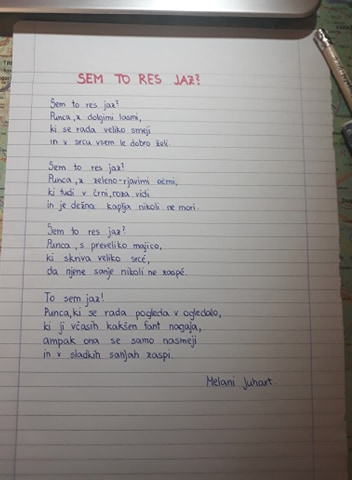 SEM TO RES JAZ?
Sem to res jaz?
Punca, z dolgimi lasmi,
ki se rada veliko smeji
in v srcu vsem le dobro želi.
Sem to res jaz?
Punca, z zeleno-rjavimi očmi,
ki tudi v črni, roza vidi
in je dežna kaplja nikoli ne mori.
Sem to res jaz?
Punca, s preveliko majico,
ki skriva veliko srcé,
da njene sanje nikoli ne zaspé.
To sem jaz!
Punca, ki se rada pogleda v ogledalo,
ki ji včasih kakšen fant nagaja,
ampak ona se samo nasmeji
in v sladkih sanjah zaspi.
Melani Juhart